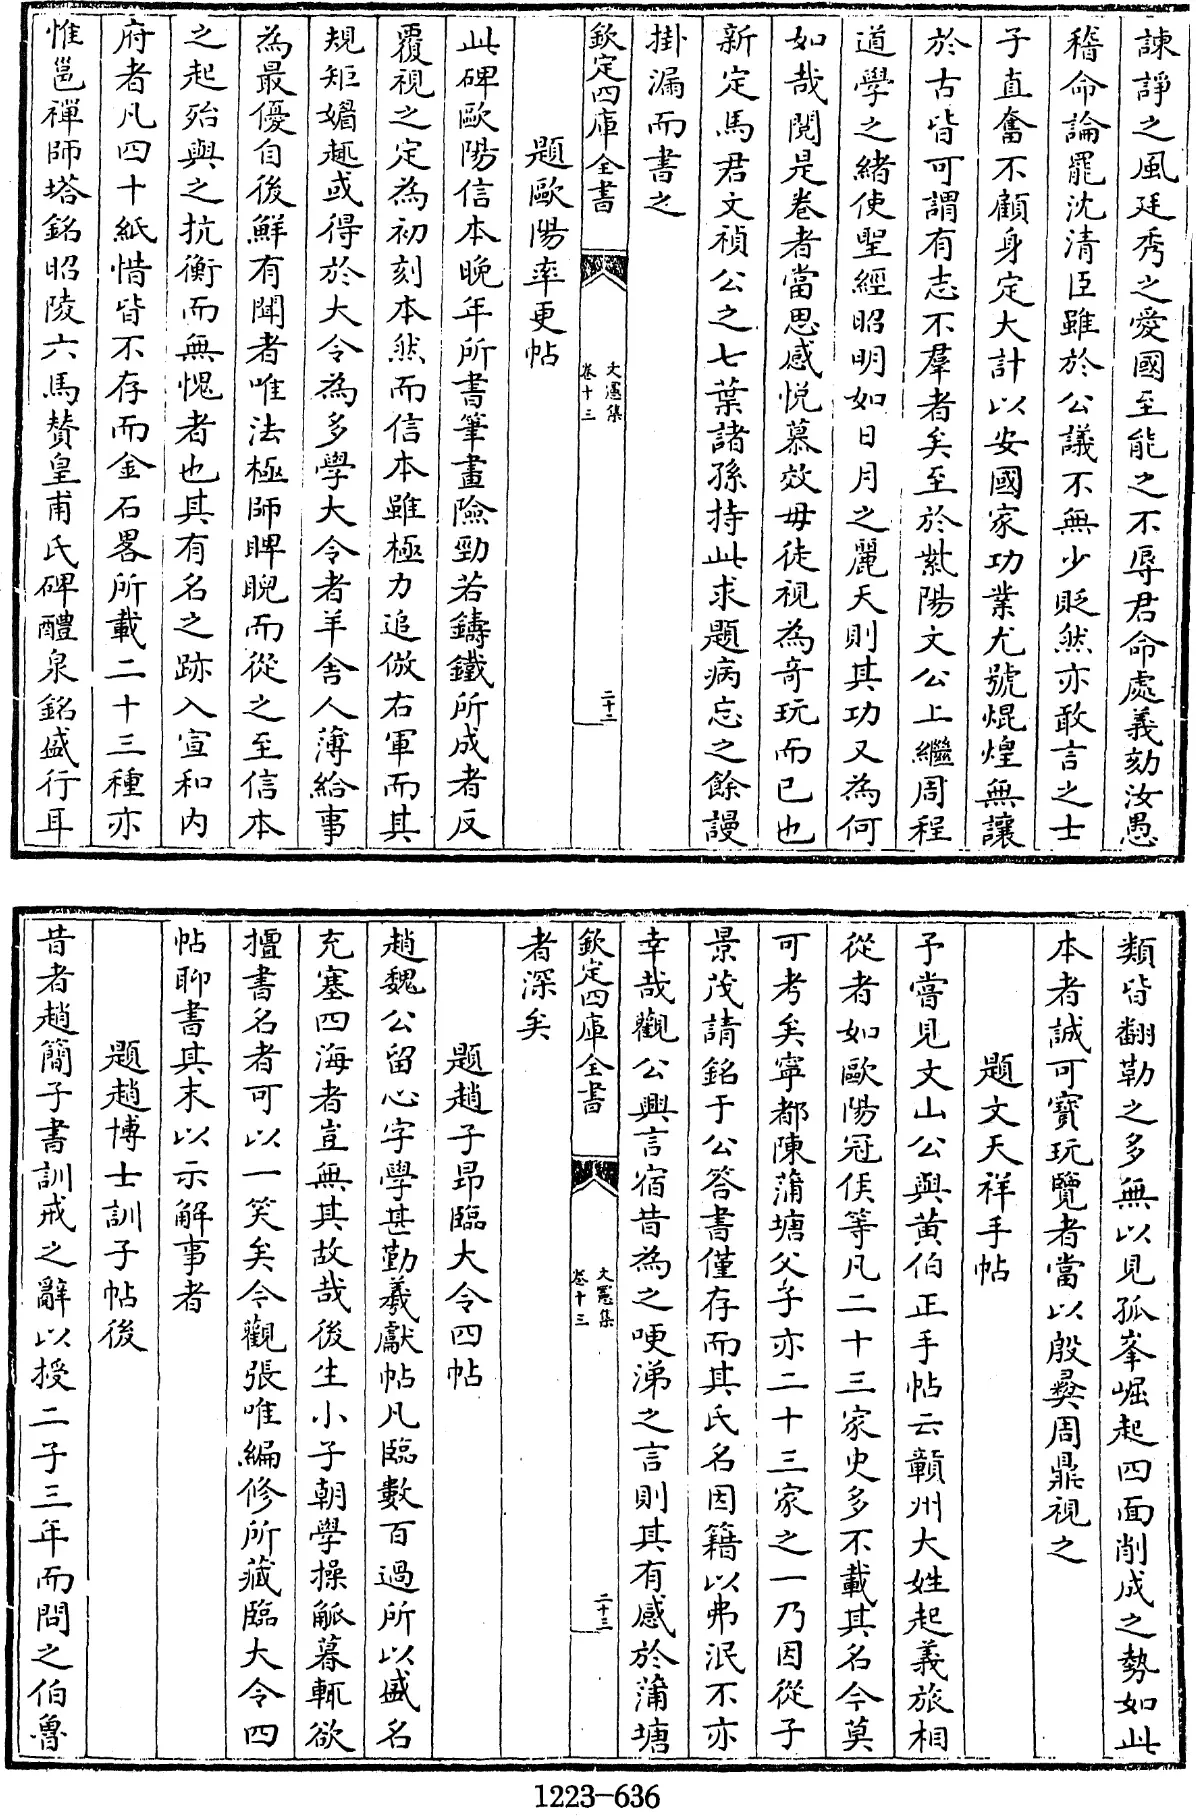 諫諍之風廷秀之愛國至能之不辱君命處義劾汝愚
稽命論罷沈清臣雖於公議不無少貶然亦敢言之士
子直奮不顧身定大計以安國家功業尤號焜煌無讓
於古皆可謂有志不羣者矣至於紫陽文公上繼周程
道學之緒使聖經昭明如日月之麗天則其功又為何
如哉閱是卷者當思感悅慕效毋徒視為奇玩而已也
新定馬君文禎公之七葉諸孫持此求題病忘之餘謾
掛漏而書之
欽定四庫全書
文憲集
卷十三
二十二
題歐陽率更帖
此碑歐陽信本晚年所書筆畫險勁若鑄鐵所成者反
覆視之定為初刻本然而信本雖極力追倣右軍而其
規矩媚趣或得於大令為多學大令者羊舍人薄給事
為最優自後鮮有聞者唯法極師睥睨而從之至信本
之起殆與之抗衡而無愧者也其有名之跡入宣和內
府者凡四十紙惜皆不存而金石畧所載二十三種亦
惟邕禪師塔銘昭陵六馬贊皇甫氏碑醴泉銘盛行耳
類皆翻勒之多無以見孤峯崛起四面削成之勢如此
本者誠可寶玩覽者當以殷彝周鼎視之
題文天祥手帖
予嘗見文山公與黃伯正手帖云贛州大姓起義旅相
從者如歐陽冠侯等凡二十三家史多不載其名今莫
可考矣寧都陳蒲塘父子亦二十三家之一乃因從子
景茂請銘于公答書僅存而其氏名因籍以弗泯不亦
幸哉觀公興言宿昔為之哽涕之言則其有感於蒲塘
欽定四庫全書
文憲集
卷十三
二十三
者深矣
題趙子昂臨大令四帖
趙魏公留心字學甚勤羲獻帖凡臨數百過所以盛名
充塞四海者豈無其故哉後生小子朝學操觚暮輒欲
擅書名者可以一笑矣今觀張唯編修所藏臨大令四
帖聊書其末以示解事者
題趙博士訓子帖後
昔者趙簡子書訓戒之辭以授二子三年而問之伯魯
1223-636